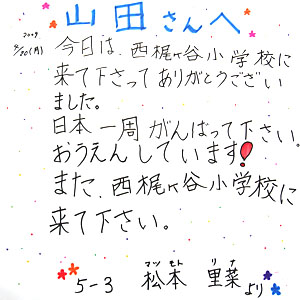 山田さんへ
2009
3/30(月)
今日は、西梶ヶ谷小学校に
来て下さってありがとうござい
ました。
日本一周がんばって下さい。
おうえんしています!
また、西梶ヶ谷小学校に
来て下さい。
マツ モト リナ
5-3 松本 里菜より